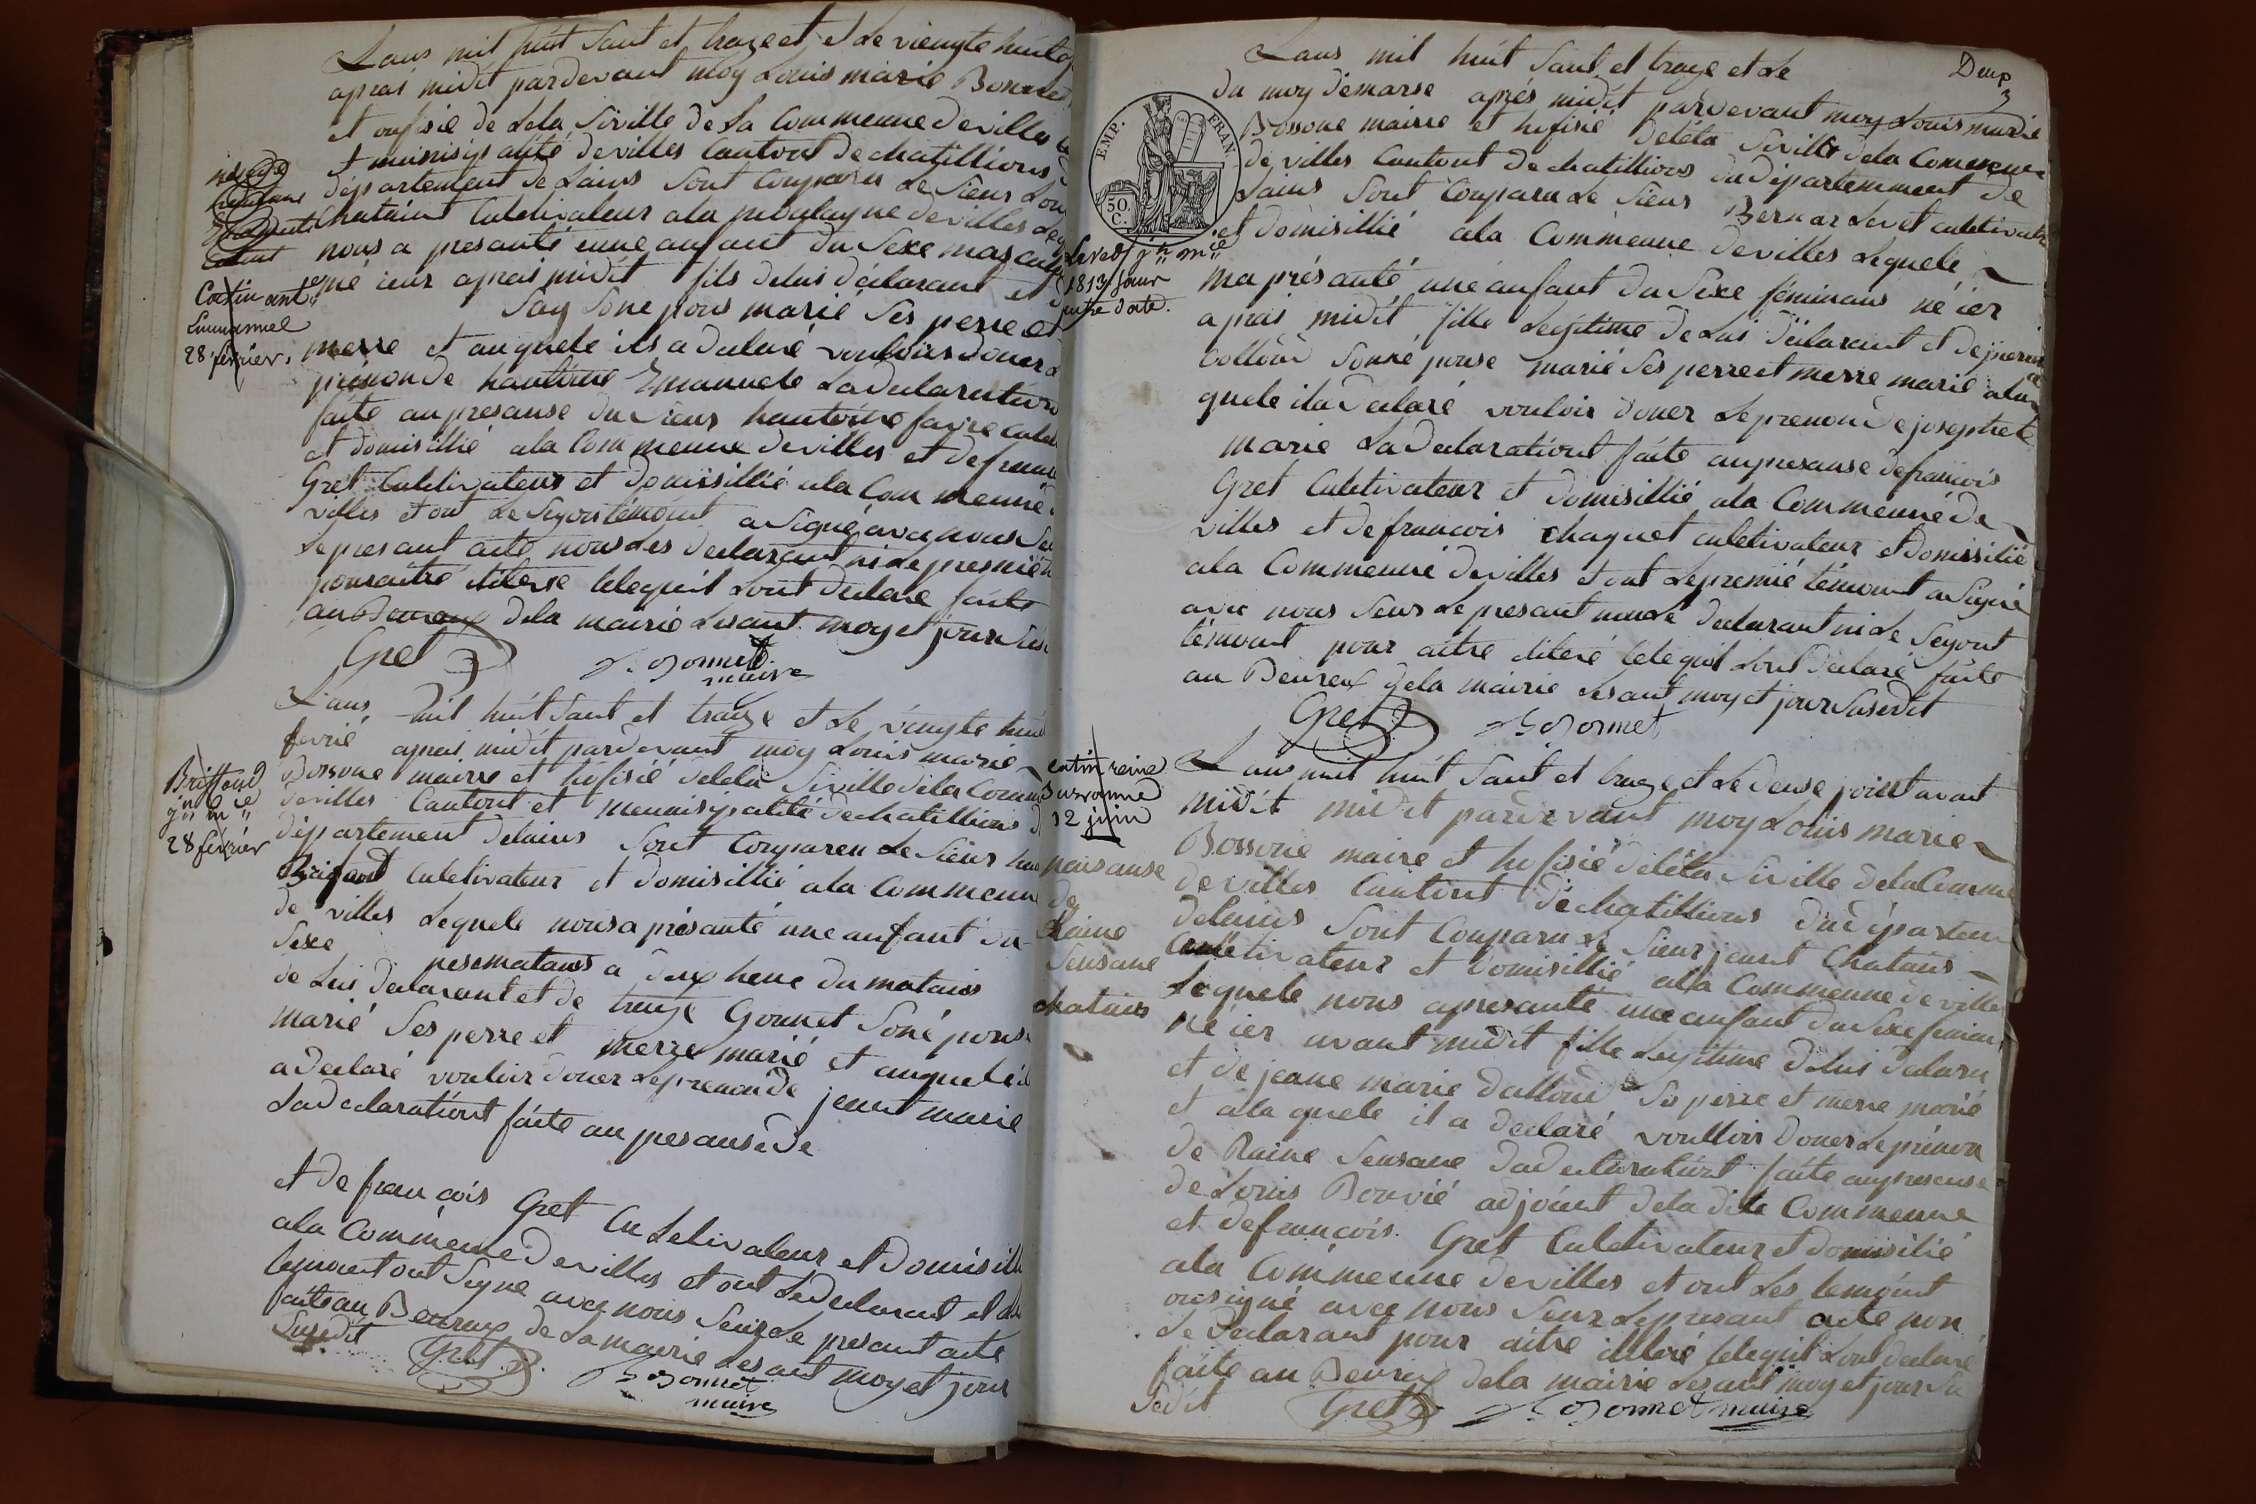 Lans mil huit Sant et traze et et Le viengte huit
aprai midit par devant moy Louis marie Bonnet
et ofisié de Leta Siville de La Commeune de villes
et munisipalité de villes Cantont de chatillions
département de Lains Sont Comparu Le Sieur Lou
Chataint Culetivateur ala montagne de villes Leq
nous a presanté eune anfant du Sexe mascul
né ier aprai midit fils de lui déclarant et d
Say Soné pous marié Ses perre et
merre et auquele ils a declaré vouloir doner Le
prénon de hantoine Emanuele La declaration
faite au presanse du Sieur hantoine favre culet
et domisillié ala Commeune de villes et de francoi
Gret Culetivateur et domissillié ala Commeune de
villes et ont Le Segont témoint a Signé avec nous Seur
Le presant acte nous Les declarant ni Le presmié t
pour aitre iliteré Celequil Lont declaré faite
au Beureux de la mairie Lesant moy et jour Sus
Gret
L. Bonnet
maire
Cottin ant
Emmannuel
28 février.
Lans mil huit Sant et traize et Le viengte huit
fevrié aprai midit par devant moy Louis marie
Bossone mairre et hofisié deleta Siville de la Comme
de villes Cantont et meunisypalité de chatillions d
département de lains Sont Compareu Le Sieur
Brifont Culetivateur et domisillié ala Commeune
de villes Lequele nous a présanté une anfant du
Sexe né se matains a deux heure du matains
de Lui declarant et de Gonnet Soné pous
marié Ses perre et merre marié et auquele il
a declaré vouloir doner Le prenon de jeant marie
La declarationt faite au presanse de
et de francois Gret Culetivateur et domisillié
ala Commeune de villes et ont Le declarant et
temoint ont Signe avec nous Seur Le presant acte
faite au Beureux de La mairie Lesant moy et jour
Susedit
Gret
L. Bonnet
maire
Briffond
jn mie
28 février
Deux
3
EMP. FRAN.
50 C.
Lans mil huit Sant et traze et Le
du moy de marse aprés midit par devant moy Louis marie
Bossone mairie et hofisié deléta Siville dela Commeune
de villes Cantont de chatillions du département de
Lains Sont Comparu Le Sieur Bernar Levet culetivateur
et domisillié ala Commeune de villes Lequele
ma présanté une anfant du Sexe féminains né ier
aprai midit fille Legitime de Lui declarant et de
Colloud Sonné pouse marié Ses perre et merre marié ala
quele ila declaré vouloir doner Le prenon de josephete
marie La declarationt faite au presanse de francois
Gret Culetivateur et domisillié ala Commeune de
villes et de francois chaquet culetivateur et domissilié
ala Commeune de villes et ont Le premié témoint a Signé
avec nous Seur Le presant non Le declarant ni Le Segont
témoint pour aitre iliteré Celequil Lont declaré faite
au Beureux dela mairie Lesant moy et jour Susedit
Gret
L. Bonnet
Levet jh mie
1813 jour
autre date.
Lans mil huit Sant et traze et Le deuse joint avant
midit midit par devant moy Louis marie
Bossone maire et hofisié deléta Siville de la Commeu
de villes Cantont de chatillions du départem
delains Sont Comparu Le Sieur jeant Chatains
Culetivateur et domisillié ala Commeune de ville
Lequele nous a presanté une anfant du Sexe femin
né ier avant midit fille Legitime de lui declara
et de jeane marie dalloud Ses perre et merre marié
et ala quele il a declaré voulloir doner Le prénon
de Raine Seusane La declarationt faite au presense
de Louis Bouvié adjoint de la dite Commeune
et de francois Gret Culetivateur et domisilié
ala Commeune de villes et ont Les temoint
on signé avec nous Seur Le presant acte non
Le declarant pour aitre iliteré Celequil Lont declaré
faite au Beureux dela mairie Lesant moy et jour Su
Sedit
Gret
L. Bonnet maire
catin reine
Suzanne
12 juin
naisanse
de
Raine
Seusane
chatains